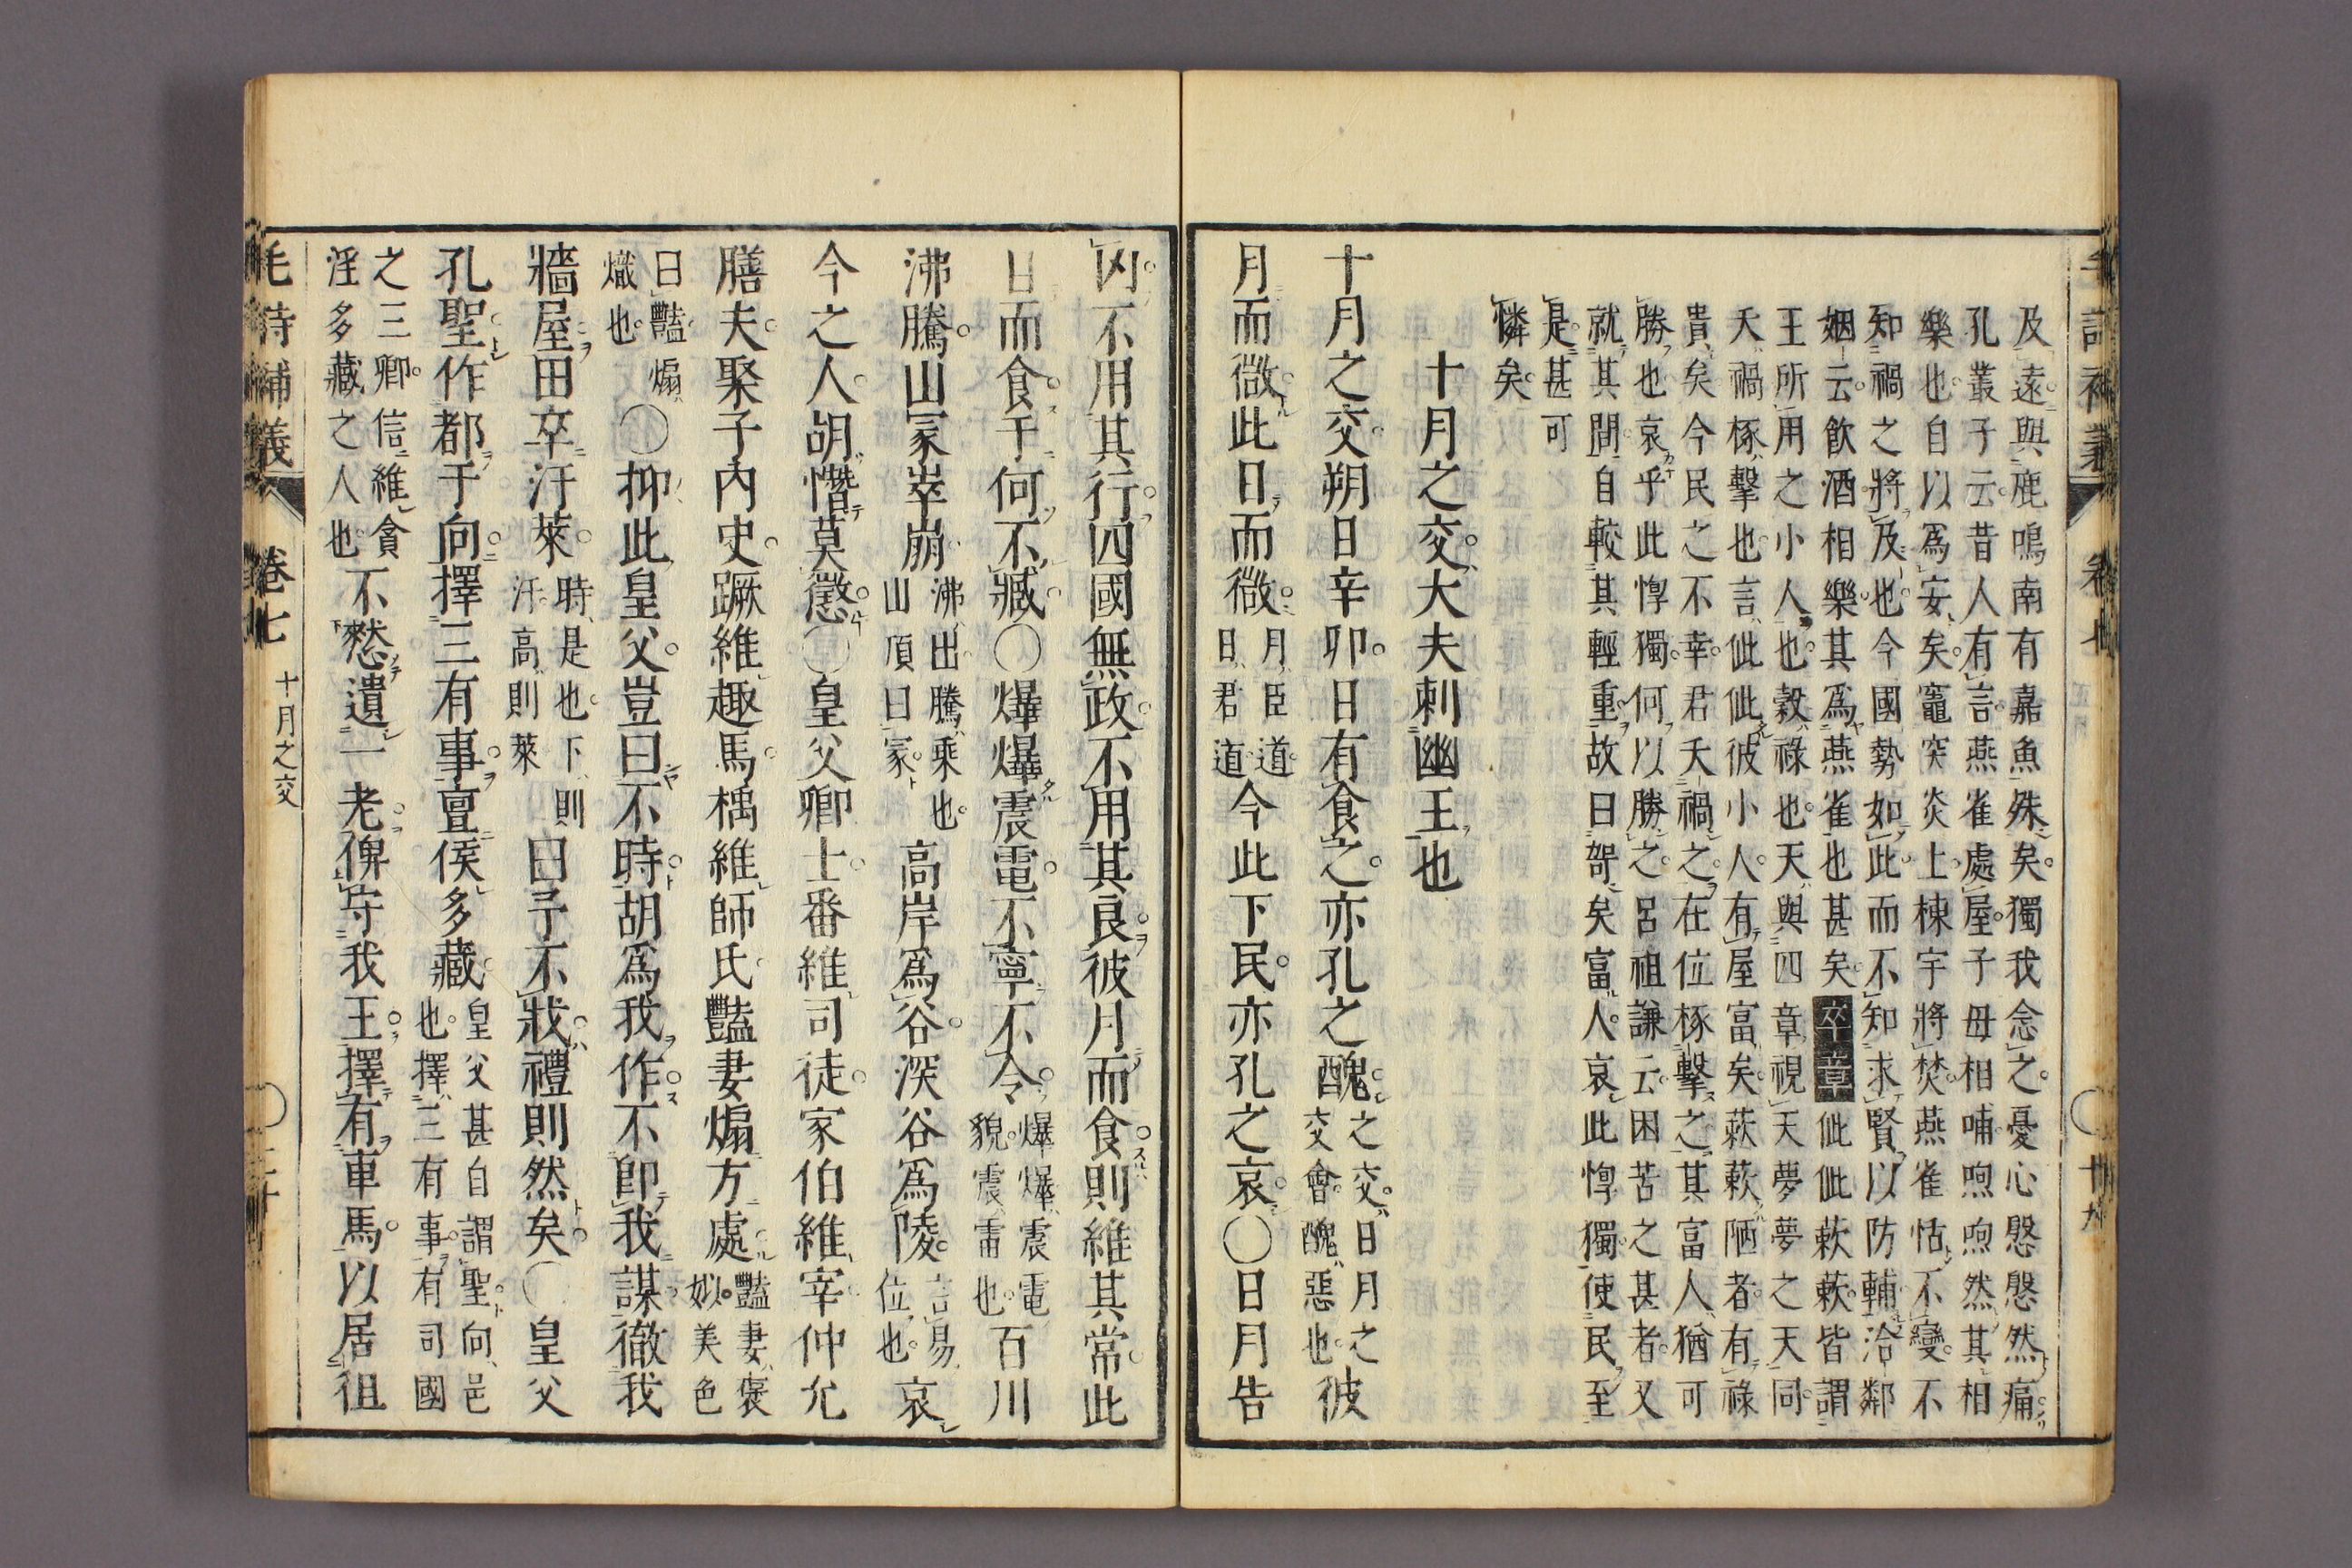 毛詩補義 卷七 廿九
及遠與鹿鳴南有嘉魚殊矣獨我念之憂心慇慇然痛
孔叢子云昔人有言燕雀處屋子母相哺喣喣然其相
樂也自以爲安矣竈突炎上棟宇將焚燕雀怡不變不
知禍之將及也今國勢如此而不知求賢以防輔洽鄰
姻云飲酒相樂其爲燕雀也甚矣卒章佌佌蔌蔌皆謂
王所用之小人也穀祿也天與四章視天夢夢之天同
夭禍椓擊也言佌佌彼小人有屋富矣蔌蔌陋者有祿
貴矣今民之不幸君夭禍之在位椓擊之其富人猶可
勝也哀乎此惸獨何以勝之呂祖謙云困苦之甚者又
就其間自較其輕重故曰哿矣富人哀此惸獨使民至
是甚可
憐矣
十月之交大夫刺幽王也
十月之交朔日辛卯日有食之亦孔之醜之交日月之交會醜惡也彼
月而微此日而微月臣道日君道今此下民亦孔之哀〇日月告
凶不用其行四國無政不用其良彼月而食則維其常此
日而食于何不臧〇爗爗震電不寧不令爗爗震電貌震雷也百川
沸騰山冢崒崩沸出騰乘也山頂曰冢高岸爲谷深谷爲陵言易位也哀
今之人胡憯莫懲〇皇父卿士番維司徒家伯維宰仲允
膳夫聚子內史蹶維趣馬楀維師氏豔妻煽方處豔妻褒姒美色
曰豔煽熾也〇抑此皇父豈曰不時胡爲我作不卽我謀徹我
牆屋田卒汙萊時是也下則汙高則萊曰予不戕禮則然矣〇皇父
孔聖作都于向擇三有事亶侯多藏皇父甚自謂聖向邑也擇三有事有司國
之三卿信維貪淫多藏之人也不憖遺一老俾守我王擇有車馬以居徂
毛詩補義 卷七 十月之交 三十